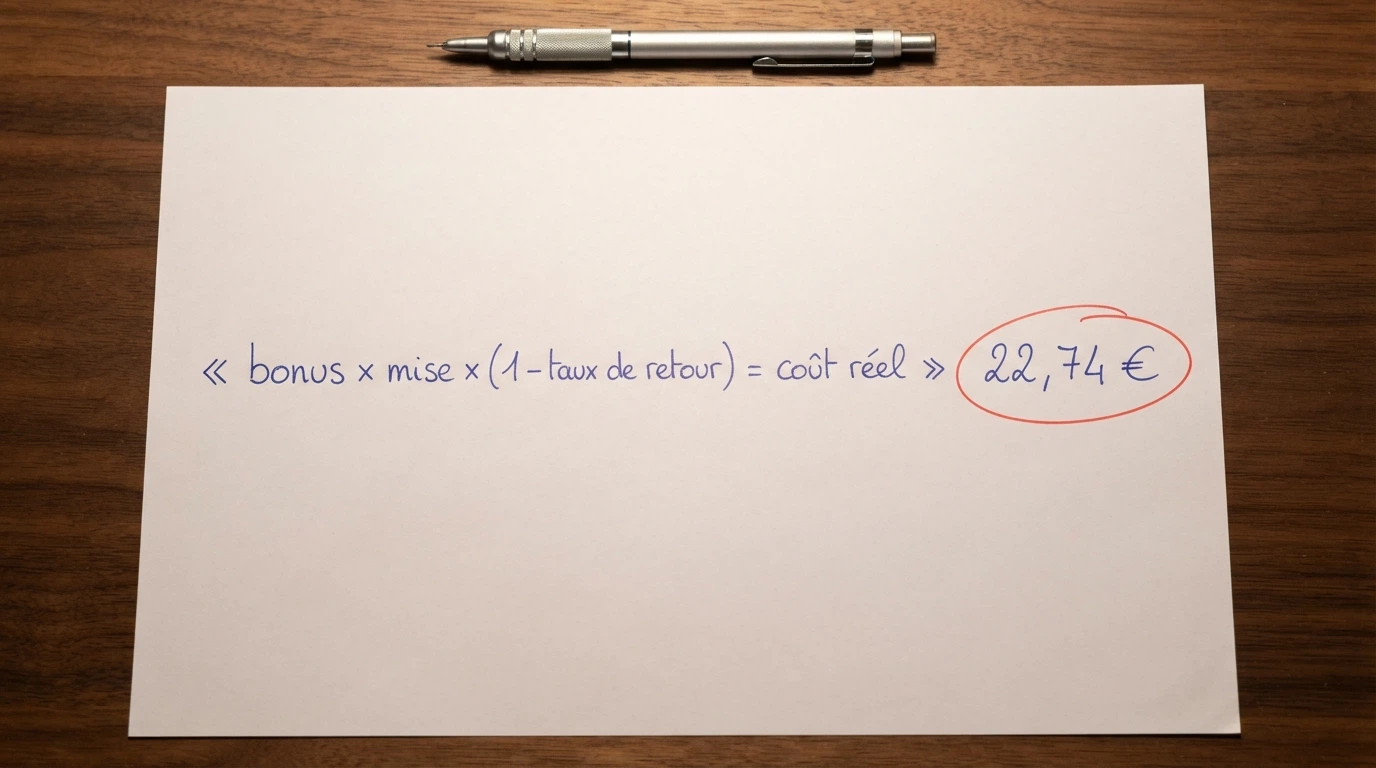 « bonus × mise × (1 – taux de retour) = coût réel » 22,74 €